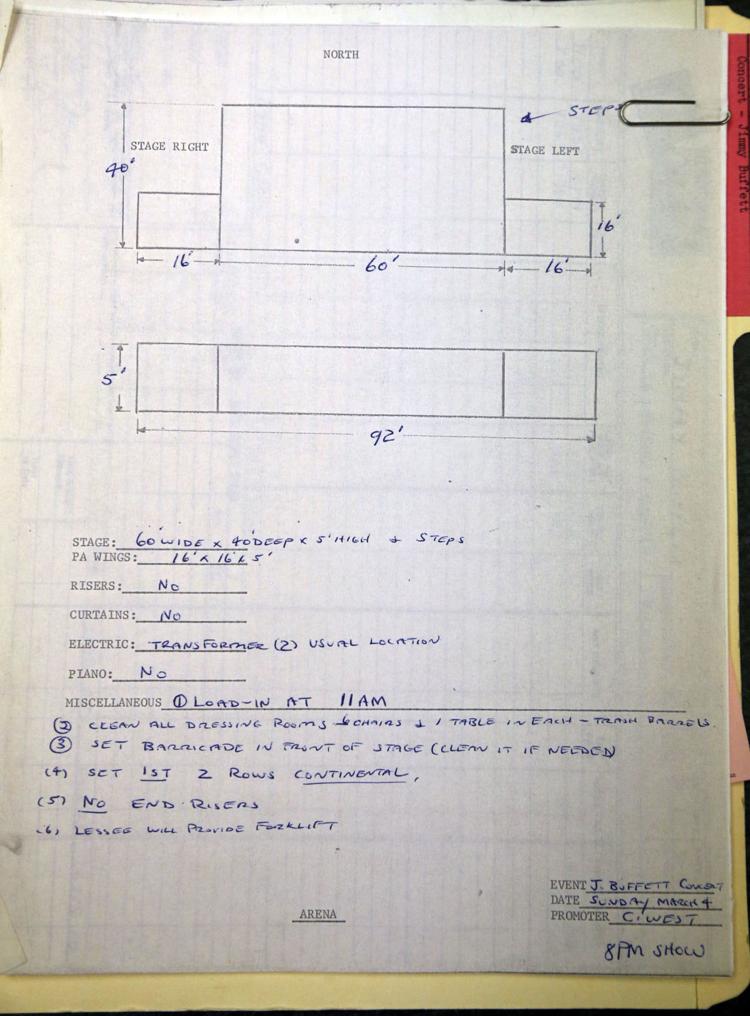 NORTH
Concert - Jimmy Buffett
STEPS
STAGE RIGHT
STAGE LEFT
40'
16'
16'
60'
16'
5'
92'
STAGE: 60' WIDE x 40' DEEP x 5' HIGH & STEPS
PA WINGS: 16' x 16' x 5'
RISERS: NO
CURTAINS: NO
ELECTRIC: TRANSFORMER (2) USUAL LOCATION
PIANO: NO
MISCELLANEOUS ① LOAD-IN AT 11AM
② CLEAN ALL DRESSING ROOMS 6 CHAIRS & 1 TABLE IN EACH - TRASH BARRELS.
③ SET BARRICADE IN FRONT OF STAGE (CLEAN IT IF NEEDED)
(4) SET 1ST 2 ROWS CONTINENTAL,
(5) NO END RISERS
(6) LESSEE WILL PROVIDE FORKLIFT
EVENT J. BUFFETT CONCERT
DATE SUNDAY MARCH 4
ARENA
PROMOTER C. WEST
8PM SHOW